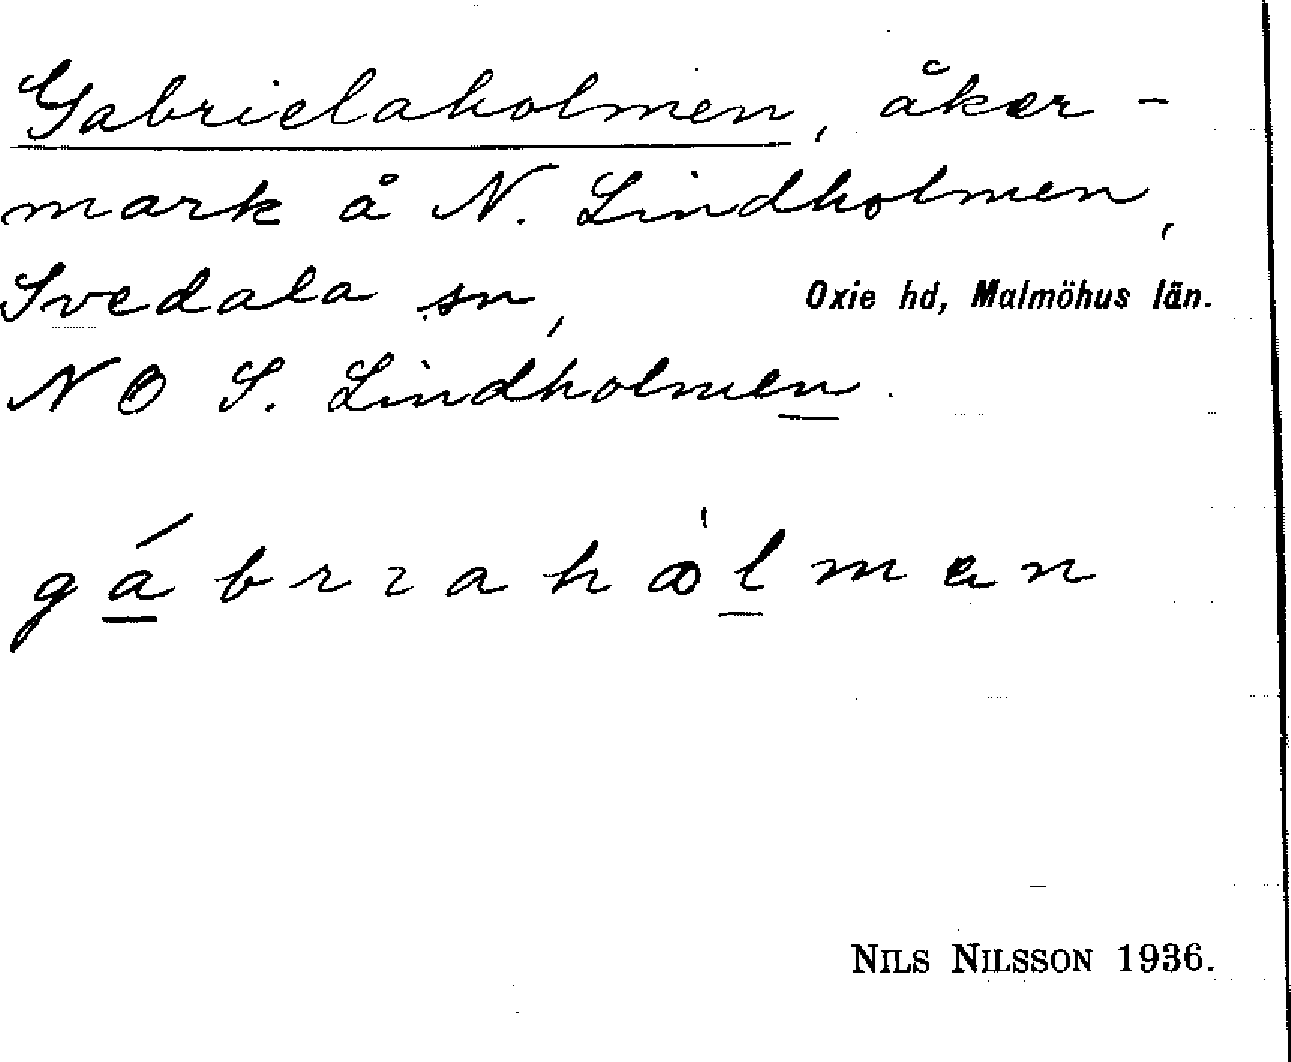 Gabrielaholmen, åker-
mark å N. Lindholmen,
Svedala sn, Oxie hd, Malmöhus län.
NO S. Lindholmen.
NILS NILSSON 1936.